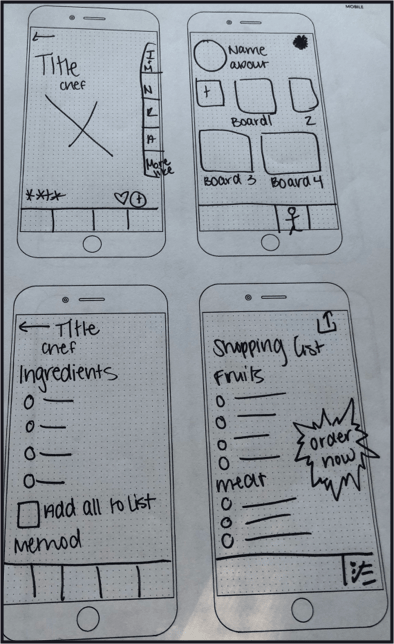 MOBILE
Title
chef
I+M
N
R
A
More like
****
+
Name
about
+
Board1
2
Board 3
Board 4
Title
chef
Ingredients
Add all to list
Method
Shopping list
Fruits
order
now
meat